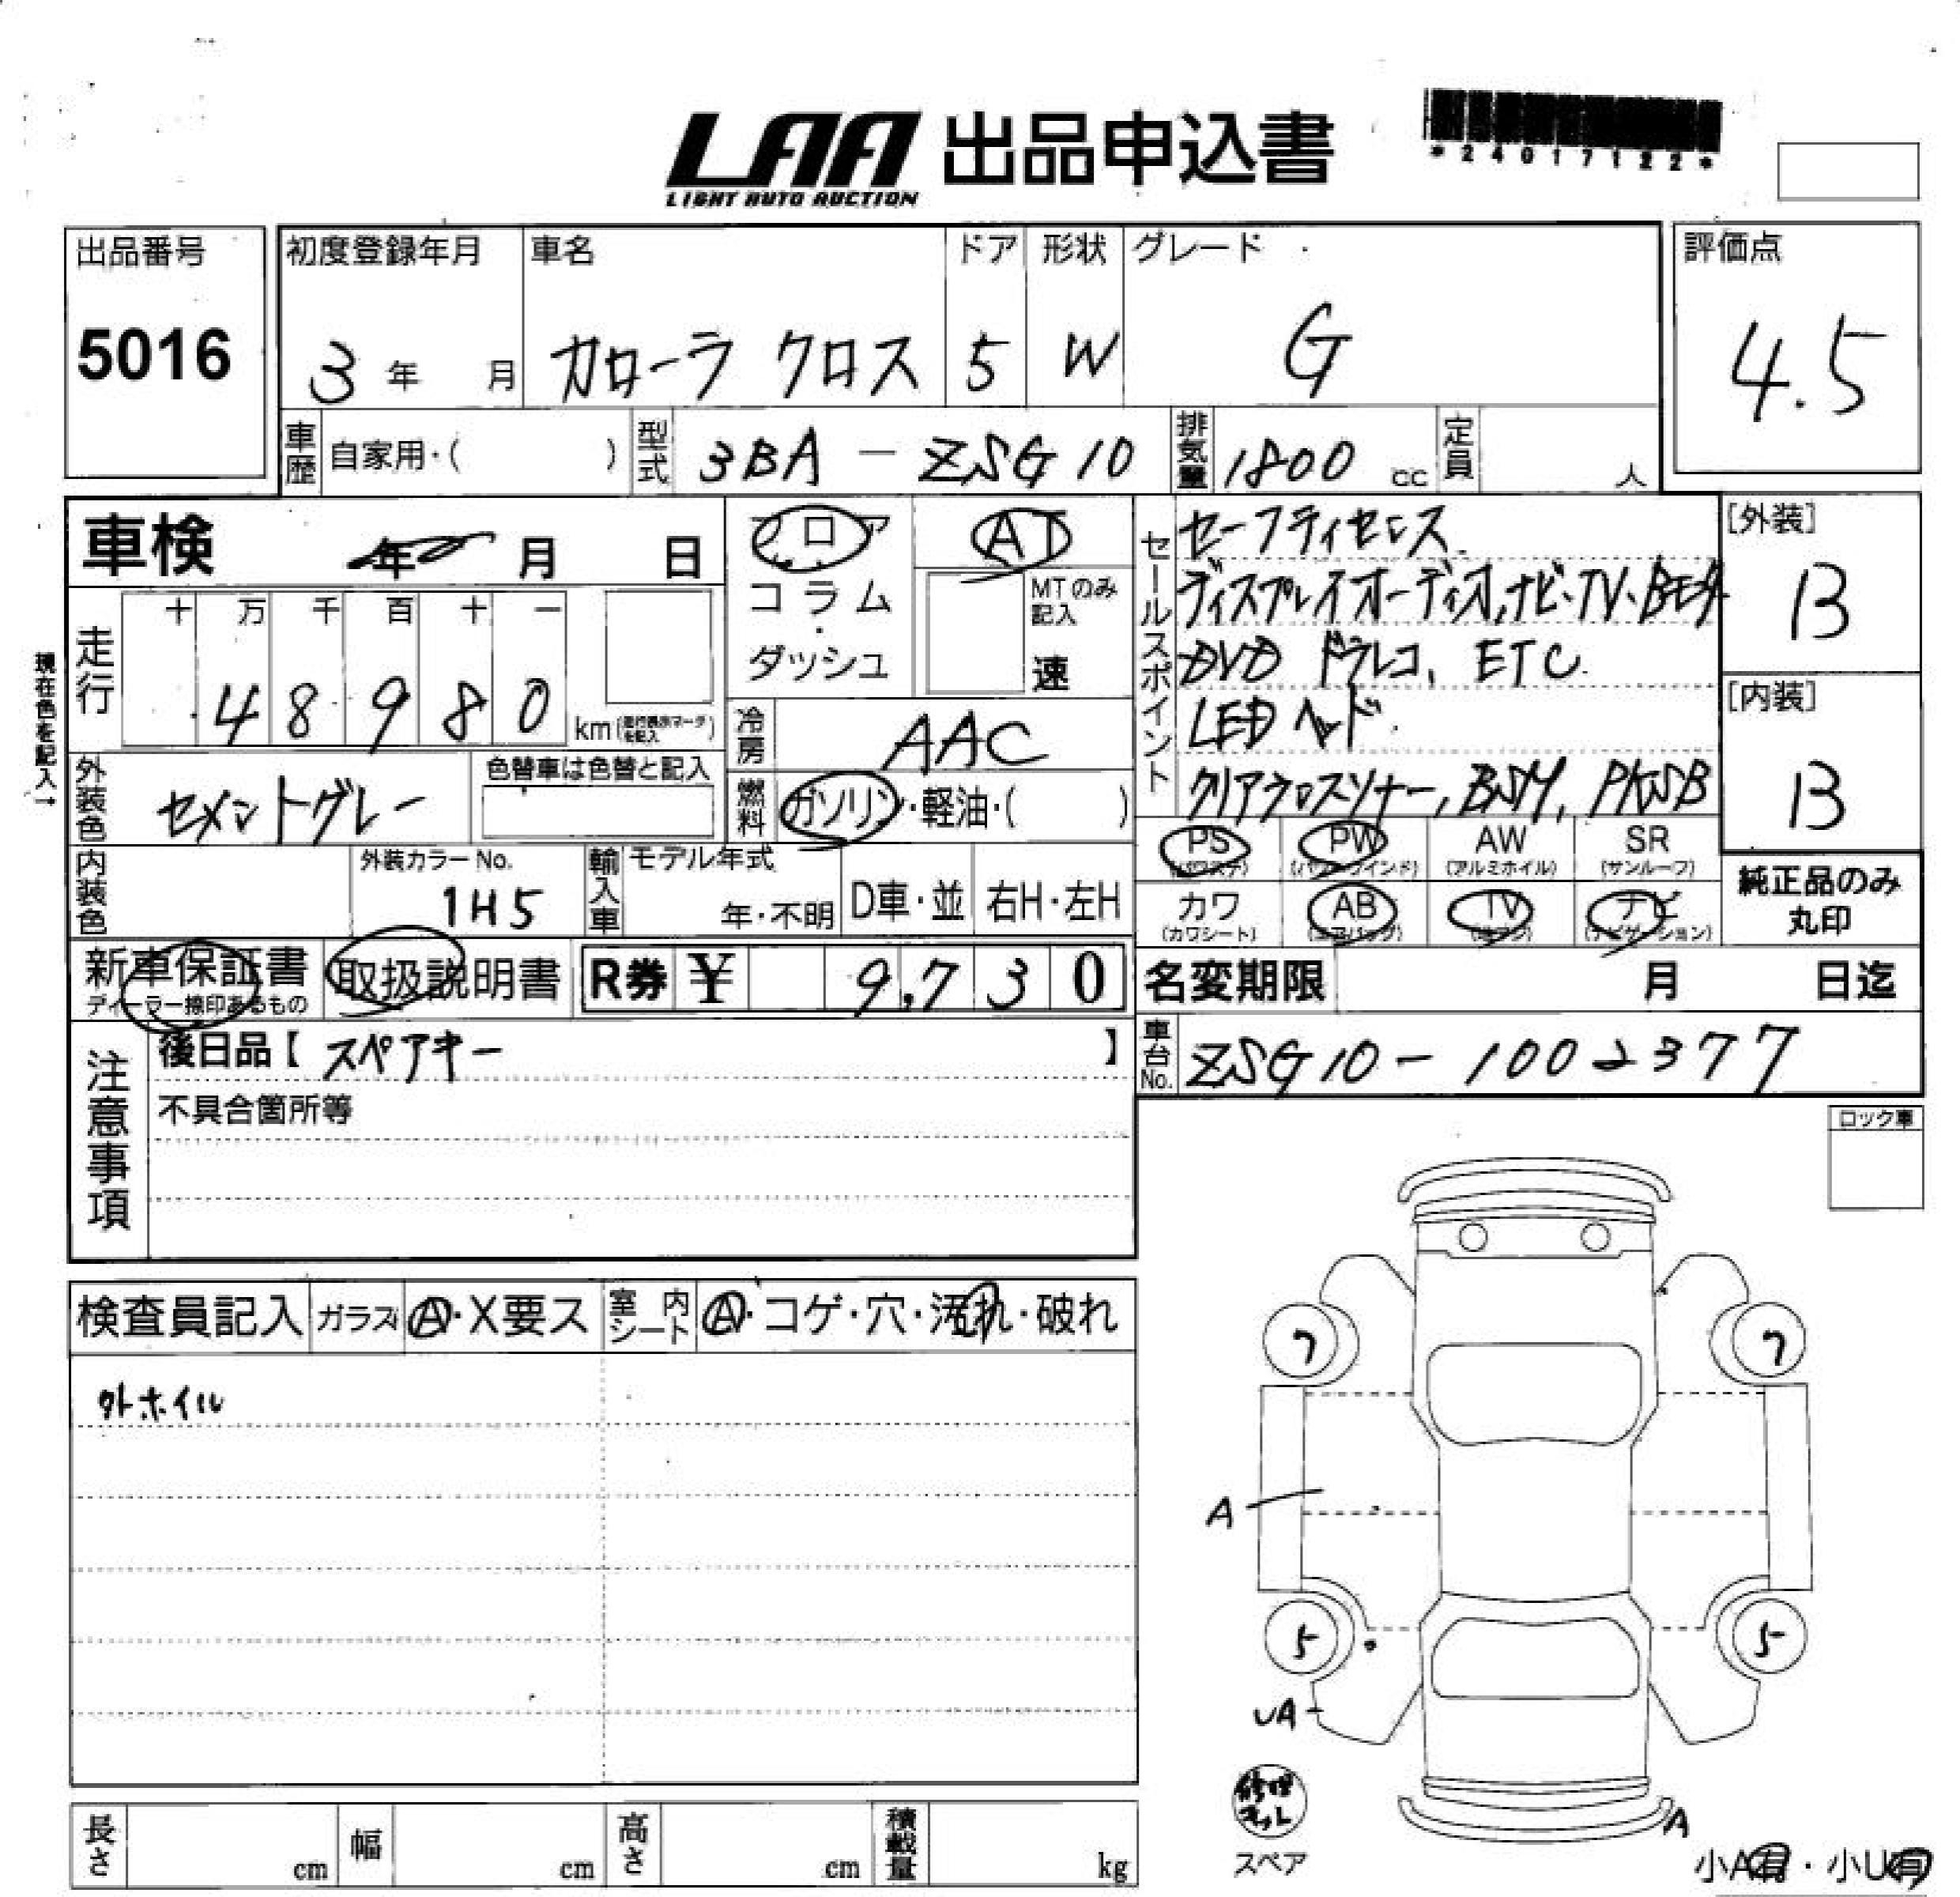 LAA 出品申込書
LIGHT AUTO AUCTION
*24017122*
出品番号
5016
初度登録年月
3年 月
車名
カローラ クロス
ドア
5
形状
W
グレード
G
評価点
4.5
車歴 自家用・( )
型式 3BA - ZSG10
排気量 1800 cc
定員 人
車検 年 月 日
現在色を記入→
走行
十 万 千 百 十 一
4 8 9 8 0 km
フロア
コラム・
ダッシュ
AT
MTのみ記入
速
冷房 AAC
燃料 ガソリン・軽油・( )
外装色 セメントグレー
色替車は色替と記入
内装色
外装カラーNo.
1H5
輸入車
モデル年式
年・不明
D車・並
右H・左H
セールスポイント
セーフティセンス
ディスプレイオーディオ,ナビ・TV・
DVD ドラレコ, ETC
LEDヘッド
クリアランスソナー, BSM, PKSB
PS
(パワステ)
PW
(パワーウインド)
AW
(アルミホイル)
SR
(サンルーフ)
カワ
(カワシート)
AB
(エアバッグ)
TV
ナビ
(ナビゲーション)
純正品のみ
丸印
[外装]
B
[内装]
B
新車保証書
ディーラー捺印あるもの
取扱説明書
R券 ¥ 9,730
名変期限 月 日迄
車台No. ZSG10-1002377
注意事項
後日品【 スペアキー 】
不具合箇所等
ロック車
検査員記入
ガラス
A・X要ス
室内シート
A・コゲ・穴・汚れ・破れ
外ホイル
7
7
A
5
5
UA
修理キット
スペア
A
小A有・小U有
長さ cm
幅 cm
高さ cm
積載量 kg